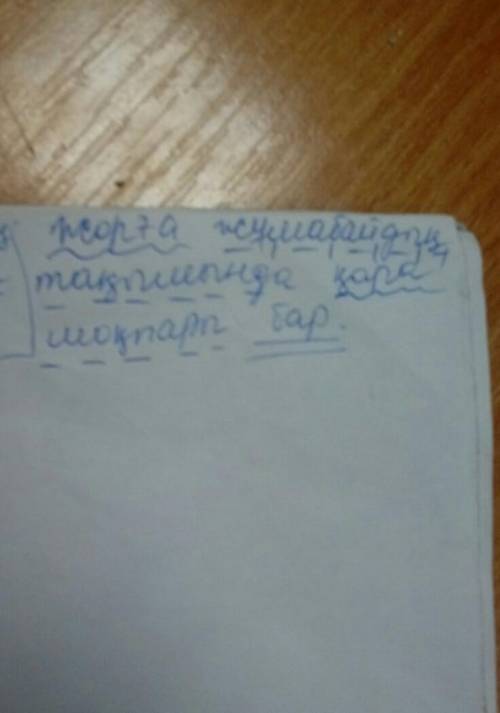 жорға жұмабайдың
тақымында қара
шоқпары бар.